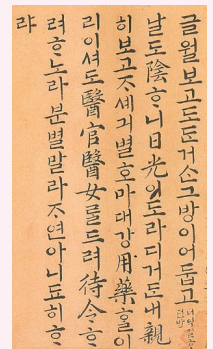 글월보고도ᄃᆞᆫ거ᄉᆞᆫ그방이어둡고
너역질ᄒᆞ
던방
날도陰ᄒᆞ니日光이도라디거든내親
히보고ᄌᆞ셰긔별호마대강用藥홀이
리이셔도醫官醫女ᄅᆞᆯ드려待令ᄒᆞ
려ᄒᆞ노라분별말라ᄌᆞ연아니됴히ᄒᆞ
랴